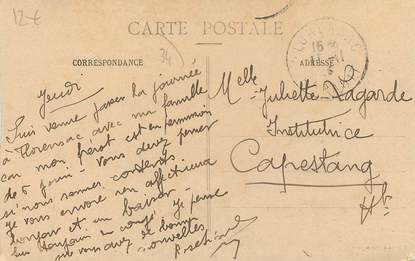 12€
CARTE POSTALE
CORRESPONDANCE
ADRESSE
34
Jeudi
Suis venue passer la journée
à Florensac avec ma famille
car mon frère est en permission
de 6 jours - vous devez penser
si nous sommes contents
je vous envoie en affectueux
bonjour et un baiser
en congé je pense
que vous avez de bonnes
nouvelles
Melle Juliette Lagarde
Institutrice
Capestang
Hlt